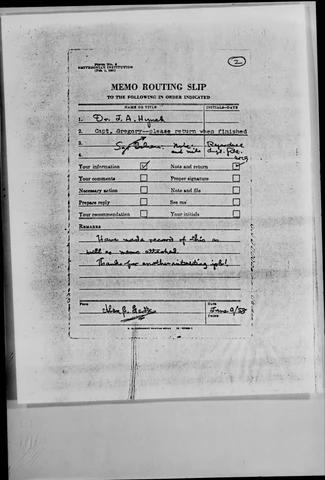 Form No. 4
SMITHSONIAN INSTITUTION
2
MEMO ROUTING SLIP
TO THE FOLLOWING IN ORDER INDICATED
NAME OR TITLE INITIALS—DATE
1. Dr. J. A. Hynek
2. Capt. Gregory--please return when finished
3.
4.
Your information Note and return
Your comments Proper signature
Necessary action Note and file
Prepare reply See me
Your recommendation Your initials
REMARKS
Have made record of this as
well as memo attached.
Thanks for another interesting job!
From Date
June 9/58